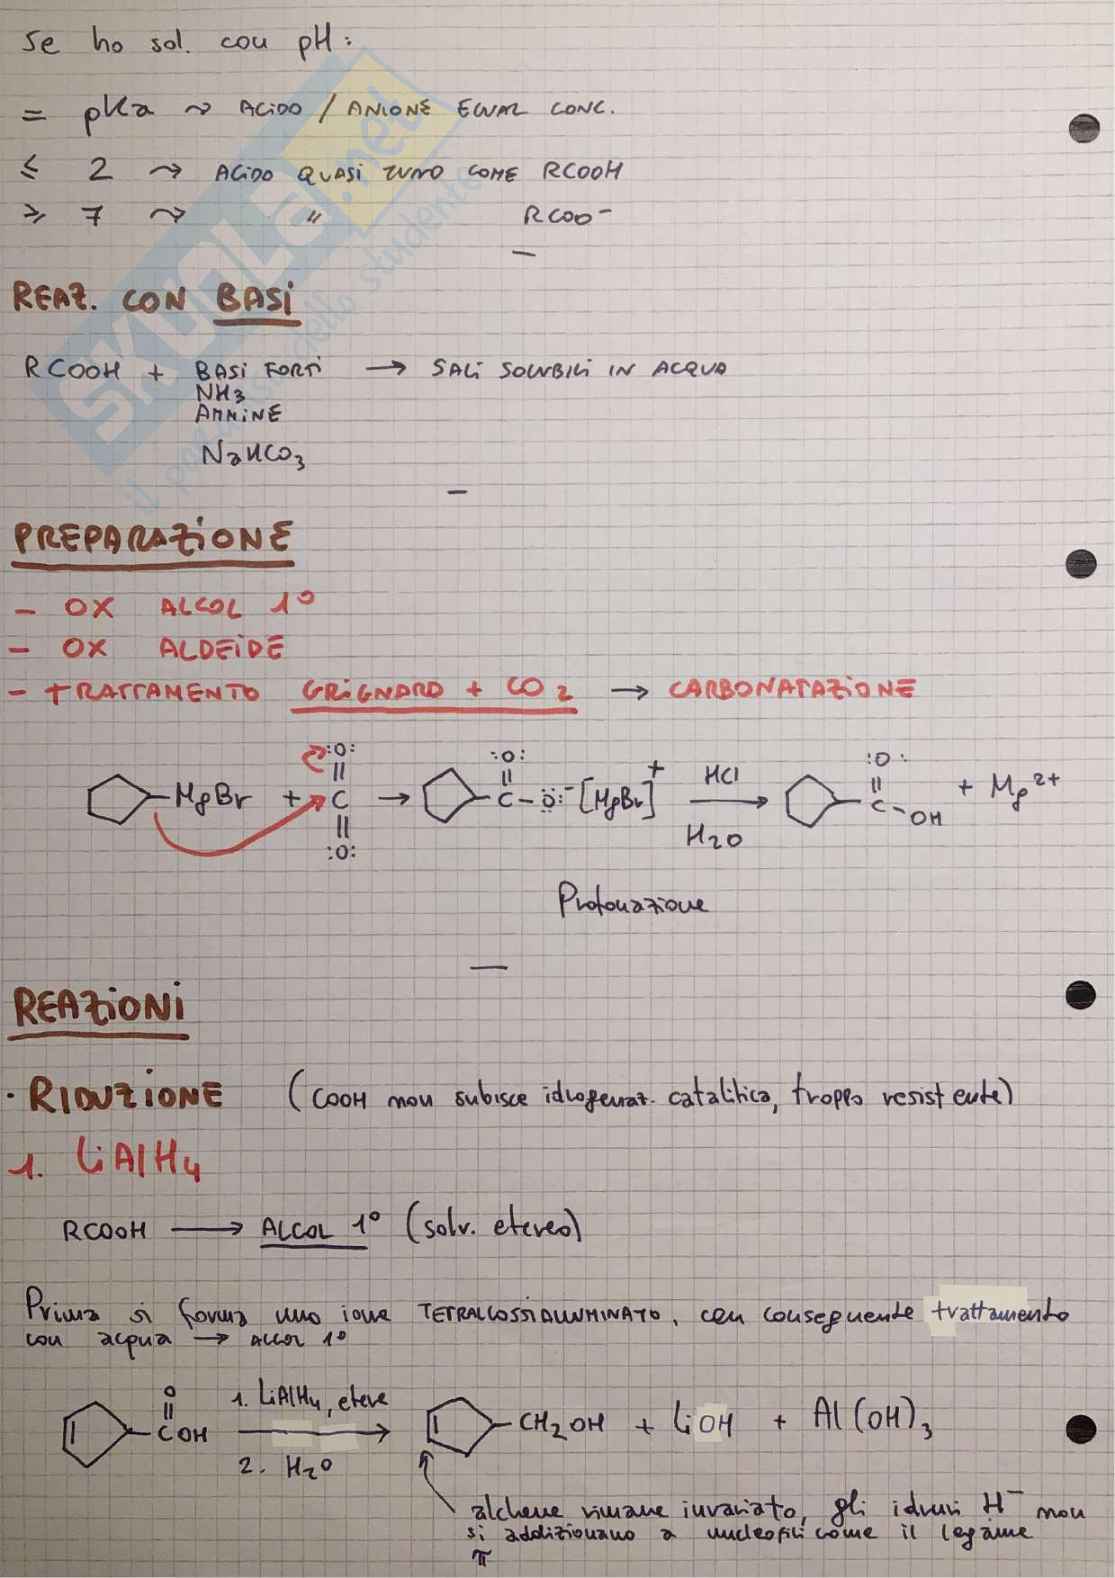 Se ho sol. con pH:
= pKa ⇝ ACIDO / ANIONE EGUAL CONC.
≤ 2 ⇝ ACIDO QUASI TUTTO COME RCOOH
≥ 7 ⇝ " RCOO⁻
REAZ. CON BASI
RCOOH + BASI FORTI → SALI SOLUBILI IN ACQUA
NH₃
AMMINE
NaHCO₃
PREPARAZIONE
- OX ALCOL 1°
- OX ALDEIDE
- TRATTAMENTO GRIGNARD + CO₂ → CARBONATAZIONE
MgBr + :O: = C = :O: → :O: = C - O:⁻ [MgBr]⁺ HCl H₂O :O: = C - OH + Mg²⁺
Protonazione
REAZIONI
· RIDUZIONE (COOH non subisce idrogenaz. catalitica, troppo resistente)
1. LiAlH₄
RCOOH → ALCOL 1° (solv. etereo)
Prima si forma uno ione TETRALCOSSIALLUMINATO, con conseguente trattamento
con acqua → ALCOL 1°
O = COH 1. LiAlH₄, etere 2. H₂O → CH₂OH + LiOH + Al(OH)₃
alchene rimane invariato, gli idruri H⁻ non
si addizionano a nucleofili come il legame
π
SKUOLA.net
il paradiso dello studente